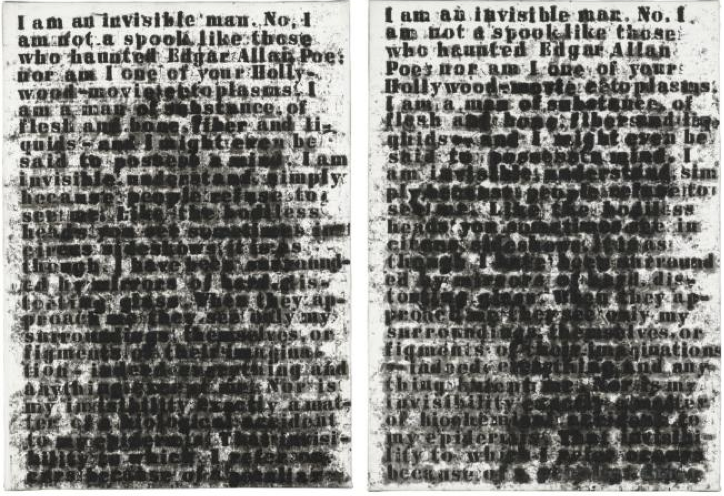 I am an invisible man. No, I
am not a spook like those
who haunted Edgar Allan Poe;
nor am I one of your Holly-
wood-movie ectoplasms. I
am a man of substance, of
flesh and bone, fiber and li-
quids - and I might even be
said to possess a mind. I am
invisible understand, simply
because people refuse to
see me. Like the bodiless
heads you see sometimes
circus sideshows, it is as
though I have been surround-
ed by mirrors of hard, dis-
torting glass. When they ap-
proach me they see only my
surroundings, themselves, or
figments of their imagina-
tion - indeed, everything and
anything except me. Nor is
my invisibility exactly a mat-
ter of a biochemical accident
to my epidermis. That invisi-
bility to which I refer oc-
curs because of a peculiar
I am an invisible man. No, I
am not a spook like those
who haunted Edgar Allan
Poe; nor am I one of your
Hollywood-movie ectoplasms.
I am a man of substance, of
flesh and bone, fiber and li-
quids - and I might even be
said to possess a mind. I
am invisible, understand sim
ply because people refuse to
see me. Like the bodiless
heads you sometimes see in
circus sideshows, it is as
though I have been surround
ed by mirrors of hard, dis-
torting glass. When they ap-
proach me they see only my
surroundings, themselves, or
figments of their imagination
- indeed, everything and any-
thing except me. Nor is my
invisibility exactly a matter
of biochemical accident to
my epidermis. That invisibi-
lity to which I refer occurs
because of a